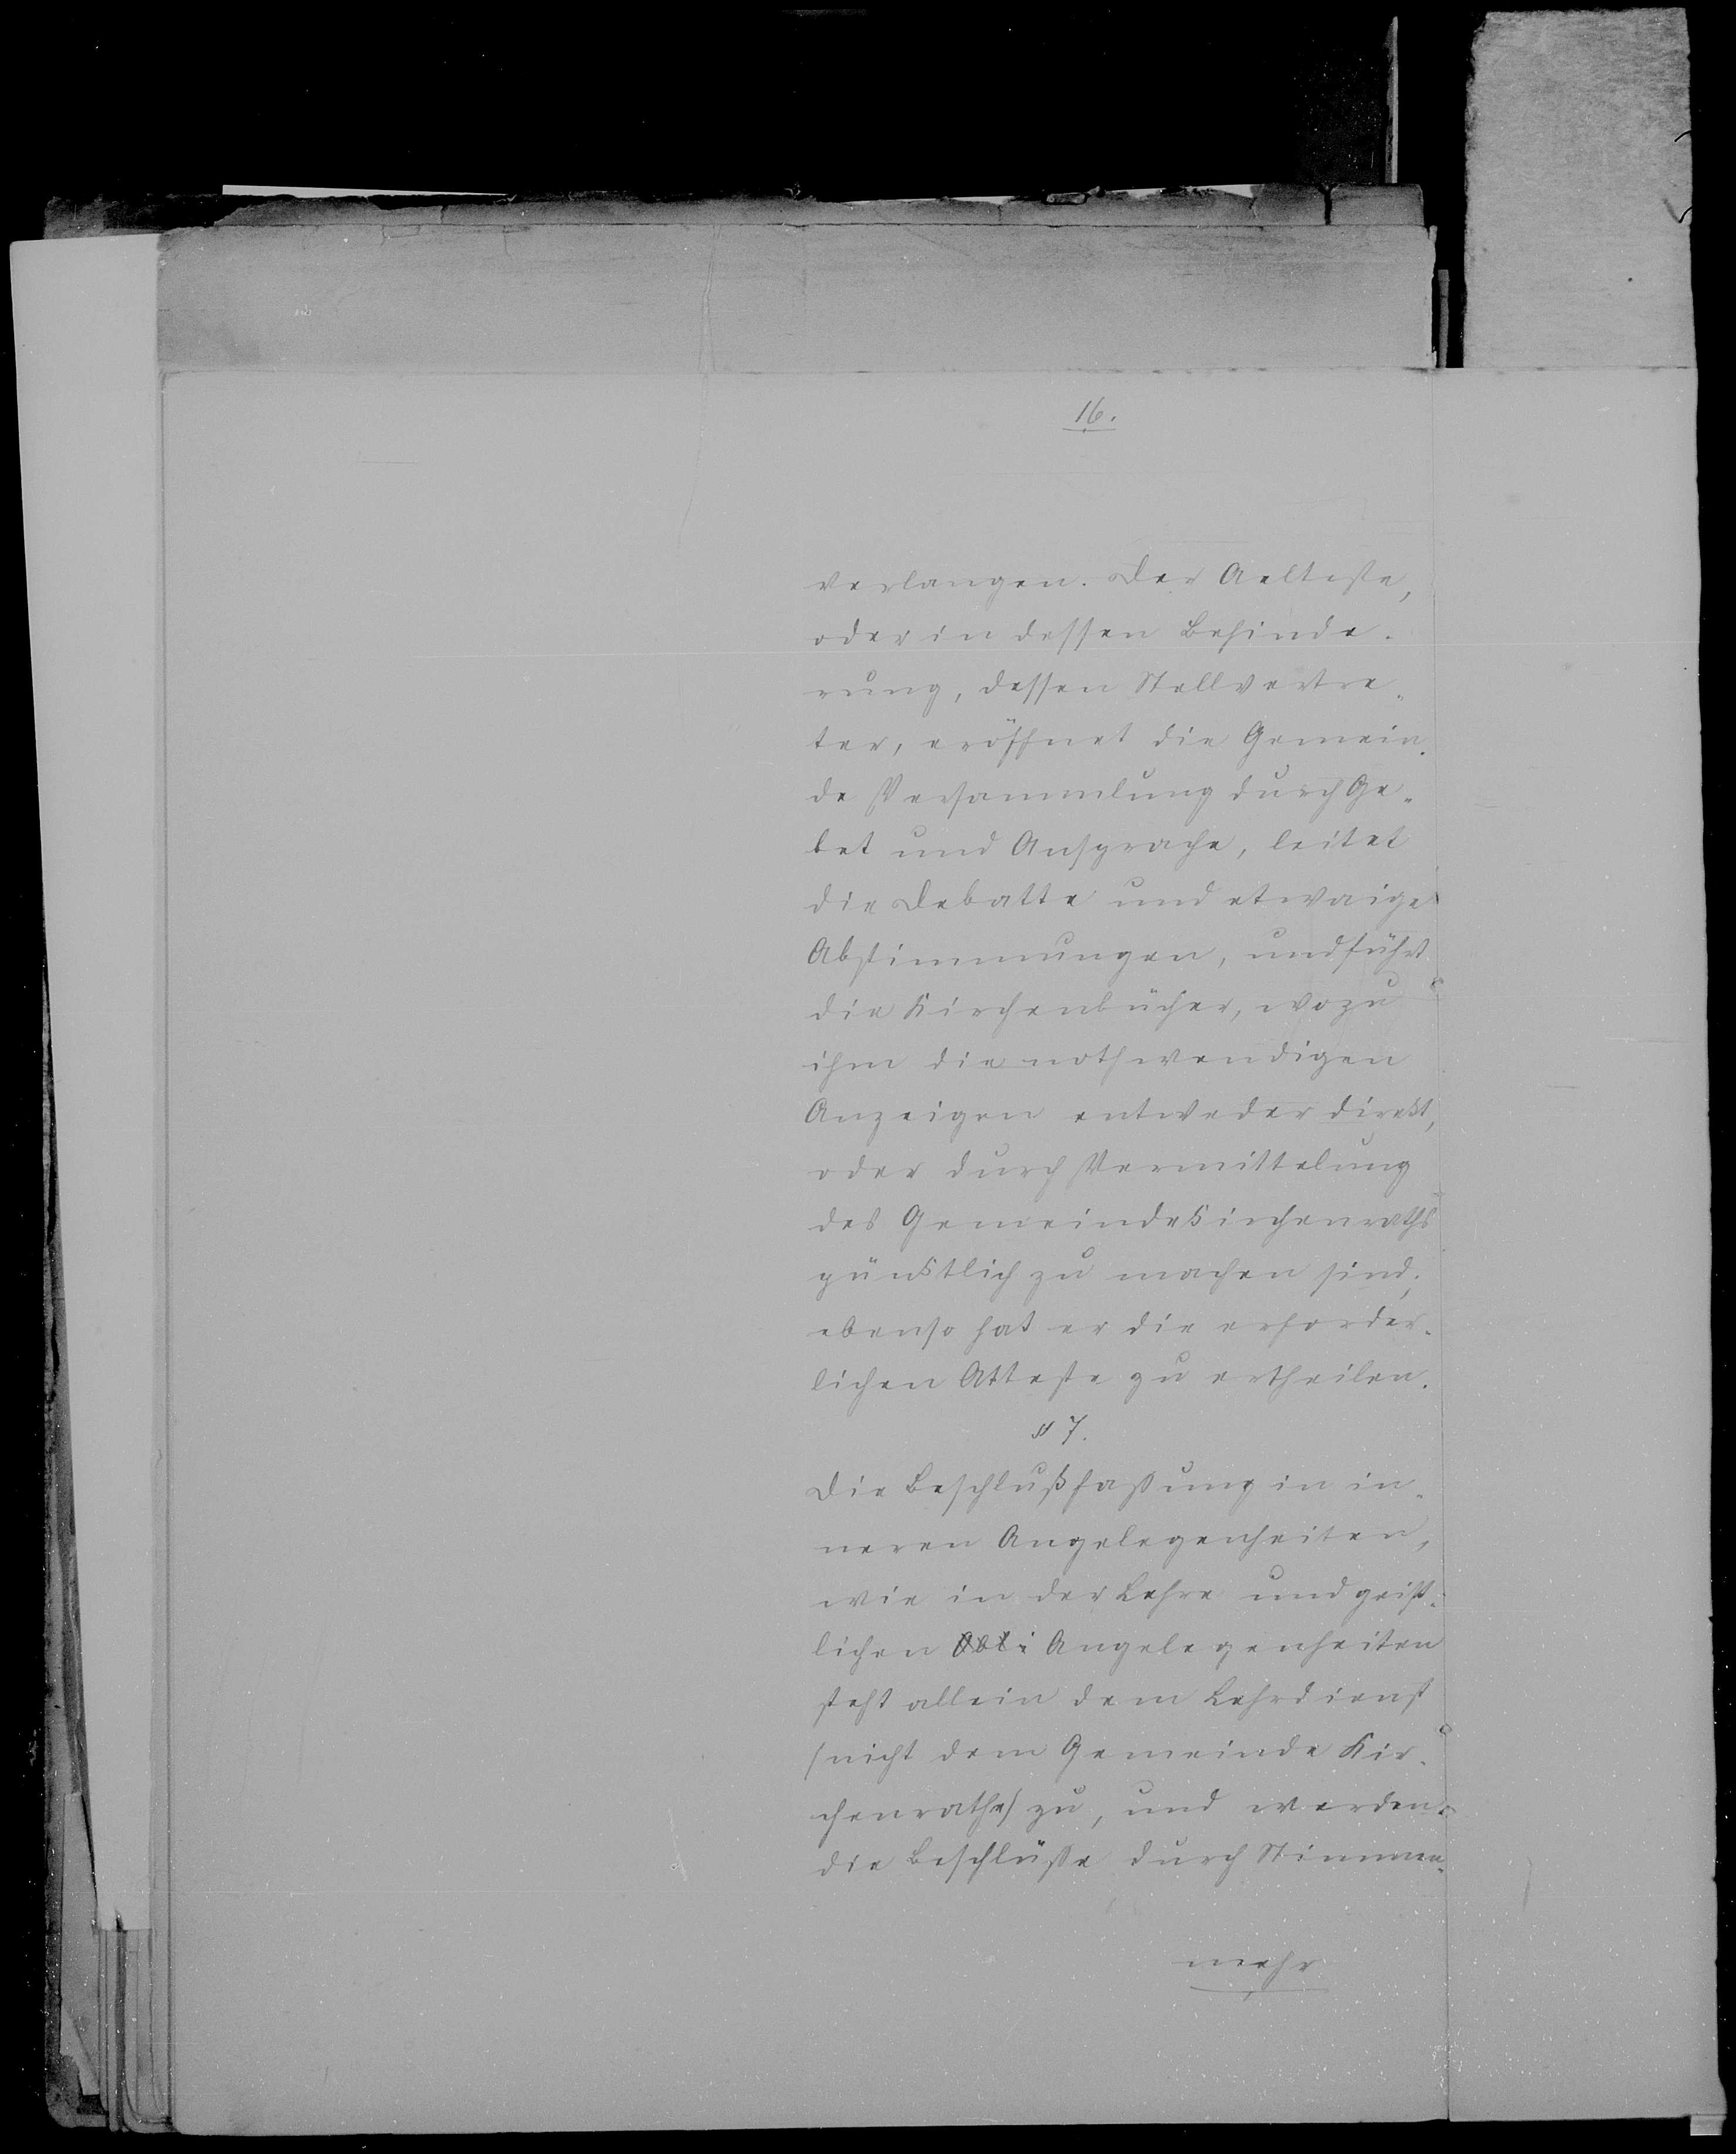 16.
verlangen. Der Aelteste,
oder in dessen Behinde-
rung, dessen Stellvertre-
ter, eröffnet die Gemein-
de Versammlung durch Ge-
bet und Ansprache, leitet
die Debatte und etwaige
Abstimmungen, und führt
die Kirchenbücher, wozu
ihm die nothwendigen
Anzeigen entweder direkt,
oder durch Vermittelung
des Gemeindekirchenraths
pünktlich zu machen sind;
ebenso hat er die erforder-
lichen Atteste zu ertheilen.
§ 7.
Die Beschlußfaßung in in-
neren Angelegenheiten,
wie in der Lehre und geist-
lichen Angelegenheiten
steht allein dem Lehrdienst
(nicht dem Gemeinde Kir-
chenrathe) zu, und werden
die Beschlüße durch Stimmen-
mehr